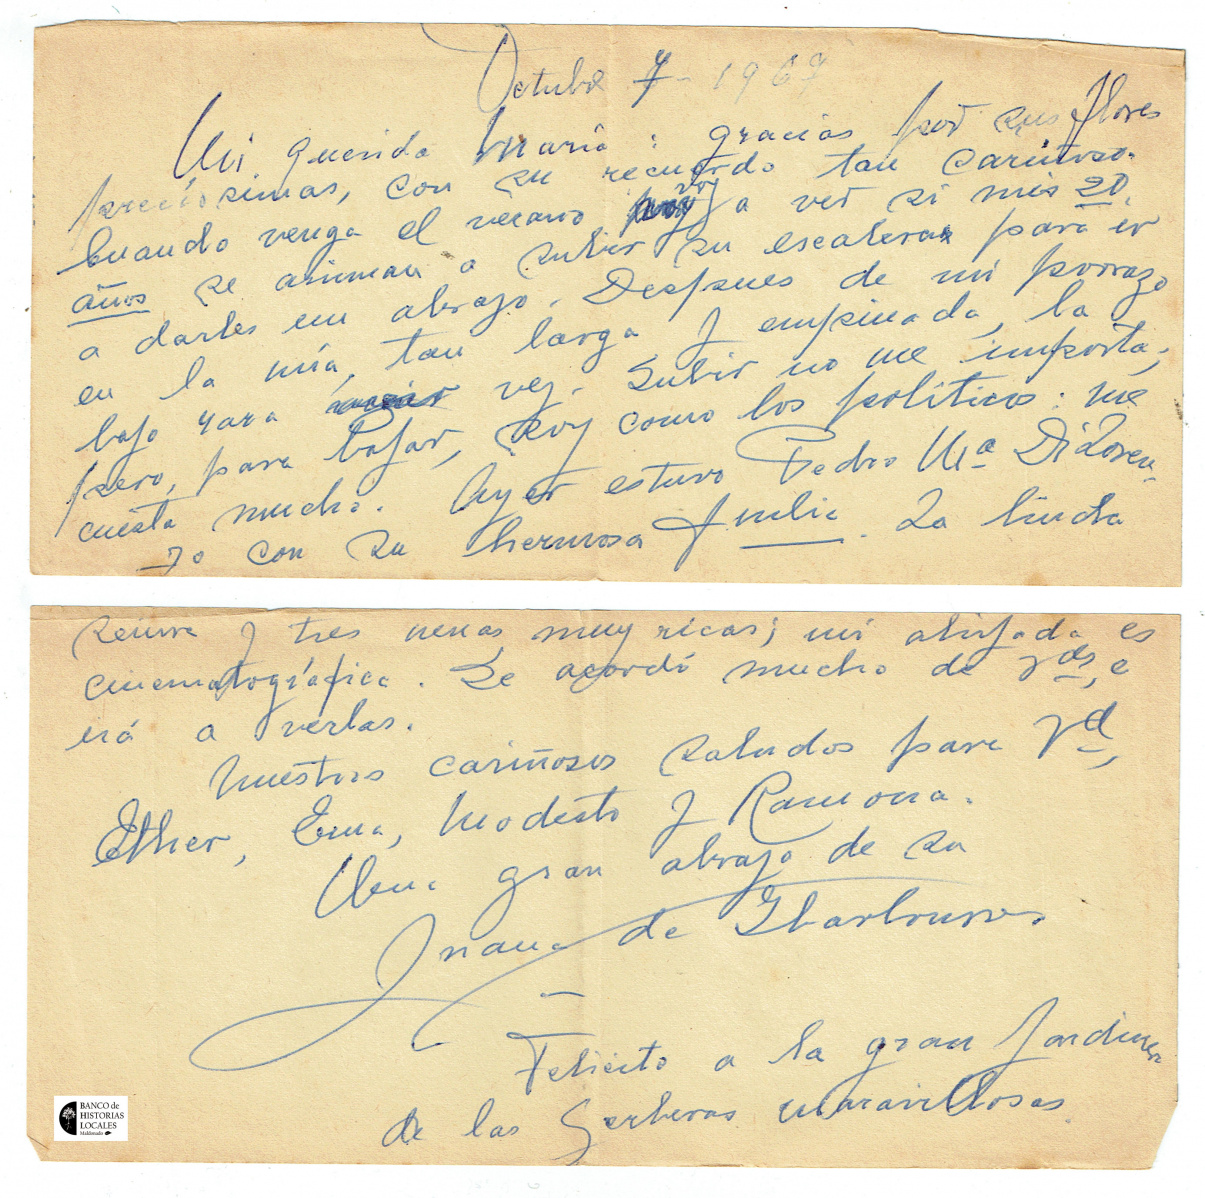 Octubre 7 - 1967
Mi querida María: gracias por sus flores
preciosimas, con su recuerdo tan cariñoso.
Cuando venga el verano voy a ver si mis 20
años se animan a subir su escalera para ir
a darles un abrazo. Después de mi porrazo
en la mía, tan larga y empinada, la
bajo rara vez. Subir no me importa,
pero, para bajar, soy como los políticos: me
cuesta mucho. Ayer estuvo Pedro Ma Di Loren-
zo con su hermosa familia. La linda
señora y tres nenas muy ricas; mi ahijada es
cinematográfica. Se acordó mucho de Vds, e
irá a verlas.
Nuestros cariñosos saludos para Vd,
Esther, Ema, Modesto y Ramona.
Un gran abrazo de su
Juana de Ibarbourou
—
Felicito a la gran jardinera
de las Gerberas maravillosas.
BANCO de
HISTORIAS
LOCALES
Maldonado